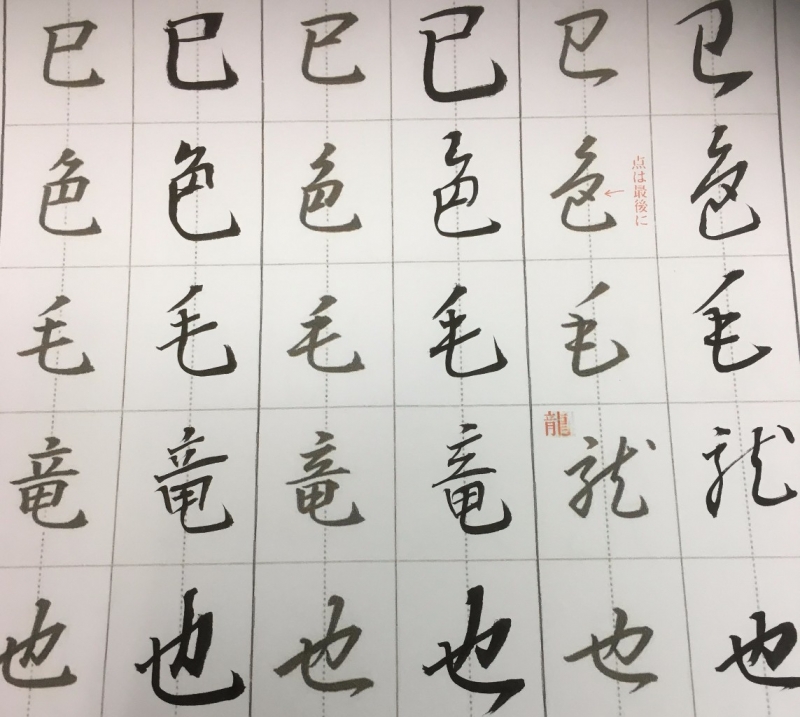 巳 巳 巳 巳 巳 巳
色 色 色 色 色 色
点は最後に
毛 毛 毛 毛 毛 毛
竜 竜 竜 竜 龍 龍
龍
也 也 也 也 也 也